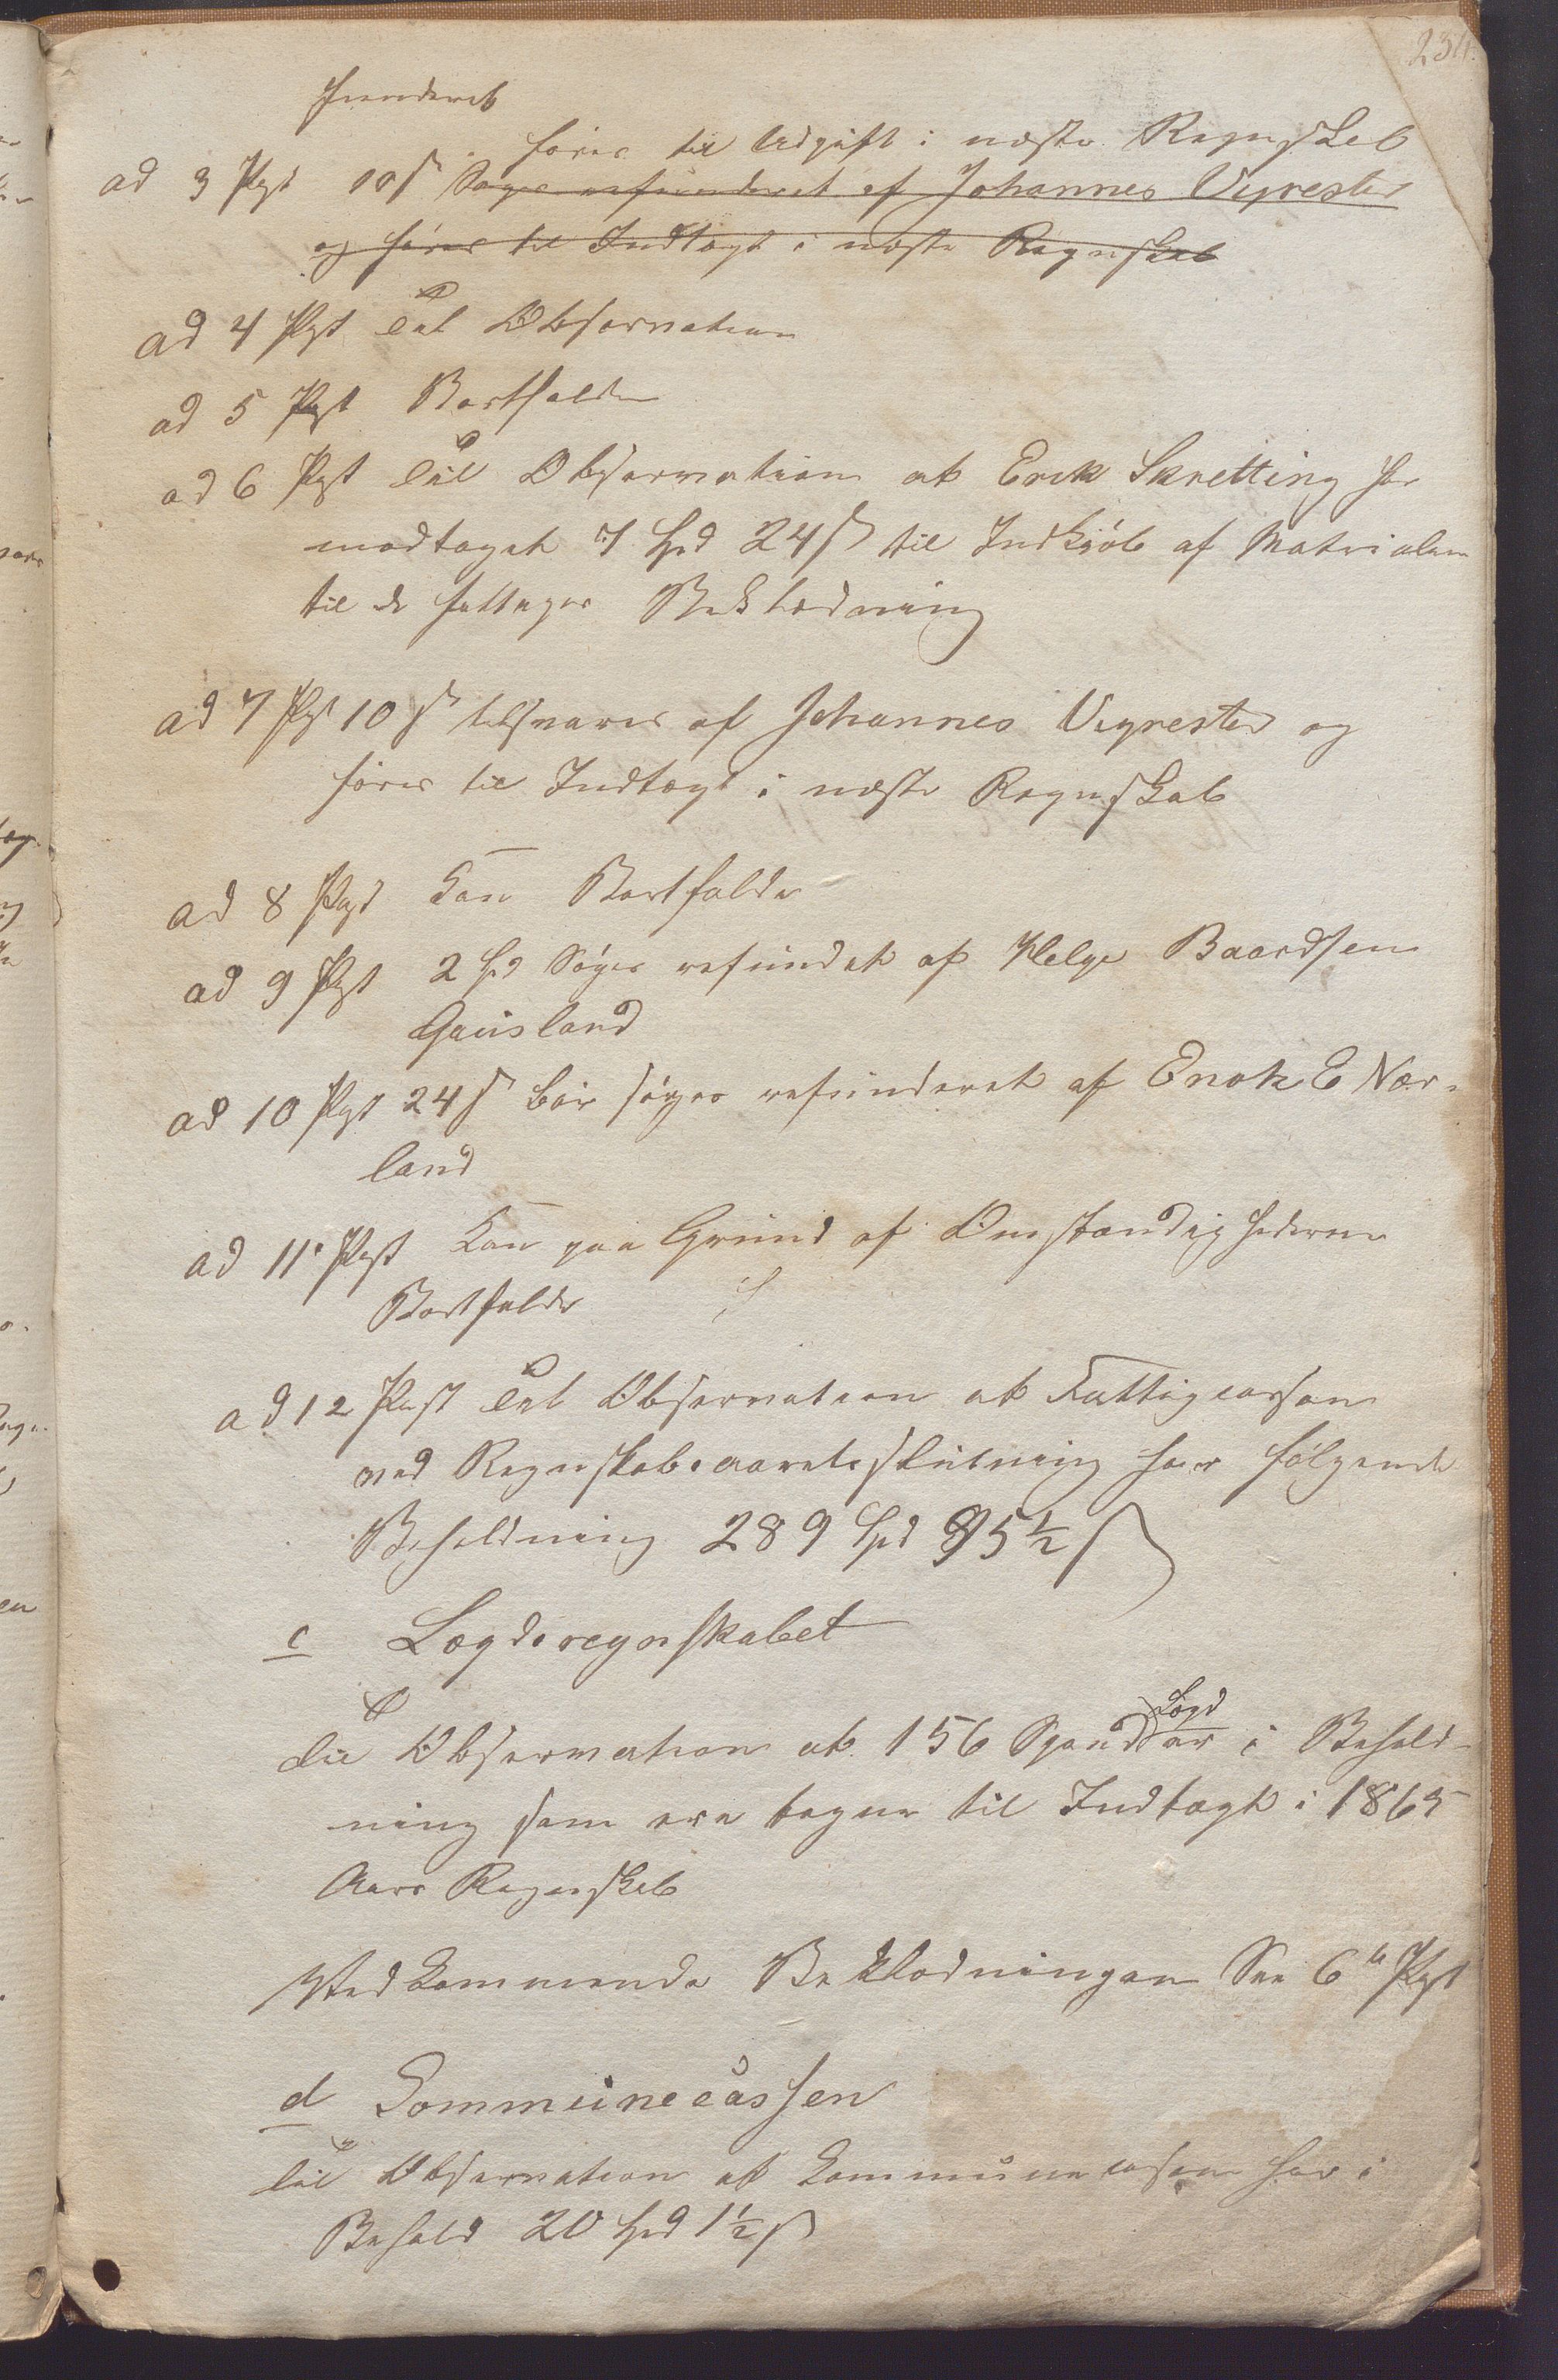 234.
funderet
føres til Udgift i næste Regnskab
ad 3 Pst 10 ß Søges refunderet af Johannes Vigrestad
og føres til Indtægt i næste Regnskab
ad 4 Pst Til Observation
ad 5 Pst Bortfalder
ad 6 Pst Til Observation at Erik Skretting har
modtaget 7 Spd 24 ß til Indkjøb af Materialer
til de fattiges Beklædning
ad 7 Pst 10 ß tilsvares af Johannes Vigrestad og
føres til Indtægt i næste Regnskab
ad 8 Pst Kan Bortfalde
ad 9 Pst 2 Spd Søges refundet af Helge Baardsen
Gausland
ad 10 Pst 24 ß bør søges refunderet af Enok E Nær-
land
ad 11 Post Kan paa Grund af Omstændighederne
Bortfalde
ad 12 Post Til Observation at Fattigcassen
ved Regnskabsaarets slutning har følgende
Beholdning 289 Spd 95½ ß
c Lægdsregnskabet
Lægd
Til Observation at 156 Spand er i Behold-
ning som ere tagne til Indtægt i 1865
Aars Regnskab
Vedkommende Beklædningen See 6te Pst
d Communecassen
Til Observation at Kommunecassen har i
Behold 20 Spd 1½ ß